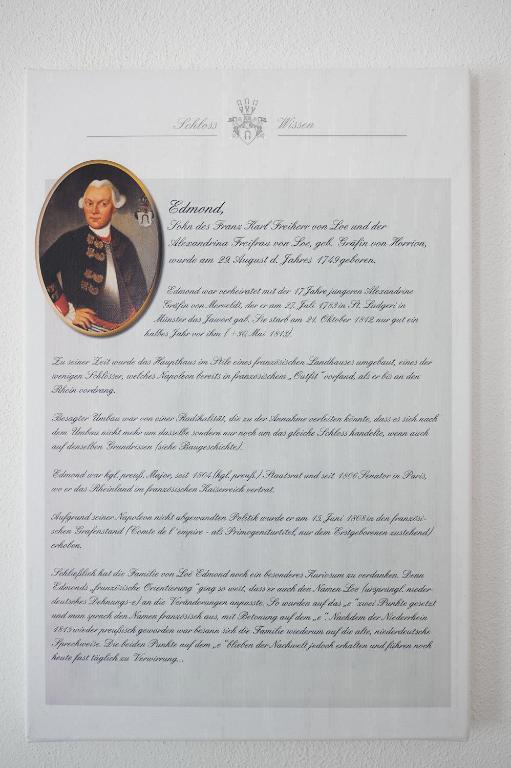 Schloss Wissen
Edmond,
Sohn des Franz Karl Freiherr von Loe und der
Alexandrina Freifrau von Loe, geb. Gräfin von Horrion,
wurde am 29. August d. Jahres 1749 geboren.
Edmond war verheiratet mit der 17 Jahre jüngeren Alexandrine
Gräfin von Merveldt, der er am 27. Juli 1783 in St. Ludgeri in
Münster das Jawort gab. Sie starb am 21. Oktober 1812, nur gut ein
halbes Jahr vor ihm (+ 30. Mai 1813).
Zu seiner Zeit wurde das Haupthaus im Stile eines französischen Landhauses umgebaut, eines der
wenigen Schlösser, welches Napoleon bereits in französischem „Outfit" vorfand, als er bis an den
Rhein vordrang.
Besagter Umbau war von einer Radikalität, die zu der Annahme verleiten könnte, dass es sich nach
dem Umbau nicht mehr um dasselbe sondern nur noch um das gleiche Schloss handelte, wenn auch
auf denselben Grundrissen (siehe Baugeschichte).
Edmond war kgl. preuß. Major, seit 1804 (kgl. preuß.) Staatsrat und seit 1806 Senator in Paris,
wo er das Rheinland im französischen Kaiserreich vertrat.
Aufgrund seiner Napoleon nicht abgewandten Politik wurde er am 15. Juni 1808 in den französi-
schen Grafenstand (Comte de l'empire - als Primogeniturtitel, nur dem Erstgeborenen zustehend)
erhoben.
Schließlich hat die Familie von Loë Edmond noch ein besonderes Kuriosum zu verdanken. Denn
Edmonds „französische Orientierung" ging so weit, dass er auch den Namen Loe (ursprüngl. nieder
deutsches Dehnungs-e) an die Veränderungen anpasste. So wurden auf das „e" zwei Punkte gesetzt
und man sprach den Namen französisch aus, mit Betonung auf dem „e". Nachdem der Niederrhein
1815 wieder preußisch geworden war besann sich die Familie wiederum auf die alte, niederdeutsche
Sprechweise. Die beiden Punkte auf dem „e" blieben der Nachwelt jedoch erhalten und führen noch
heute fast täglich zu Verwirrung...